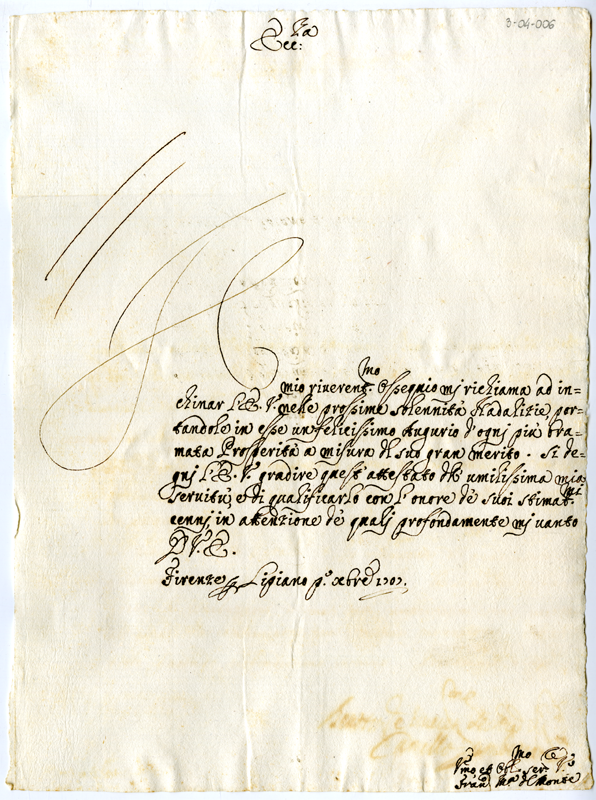 3-04-006
Ecc:za
Il mio riverent.mo Ossequio mi richiama ad in=
chinar l'E. V. nelle prossime solennità Nadalitie por=
tandole in esse un felicissimo Augurio d'ogni più bra=
mata Prosperità a misura del suo gran merito. Si de=
gni l'E. V. gradire quest'attestato dell'umilissima mia
servitù, e di qualificarlo con l'onore de' suoi stimat.mi
cenni, in attenzione de' quali profondamente mi vanto
D. V. E.
Firenze per Lipiano p.o xbre 1707.
V.mo et Obl.mo ser.e V.o
Fran.co M.a del Monte